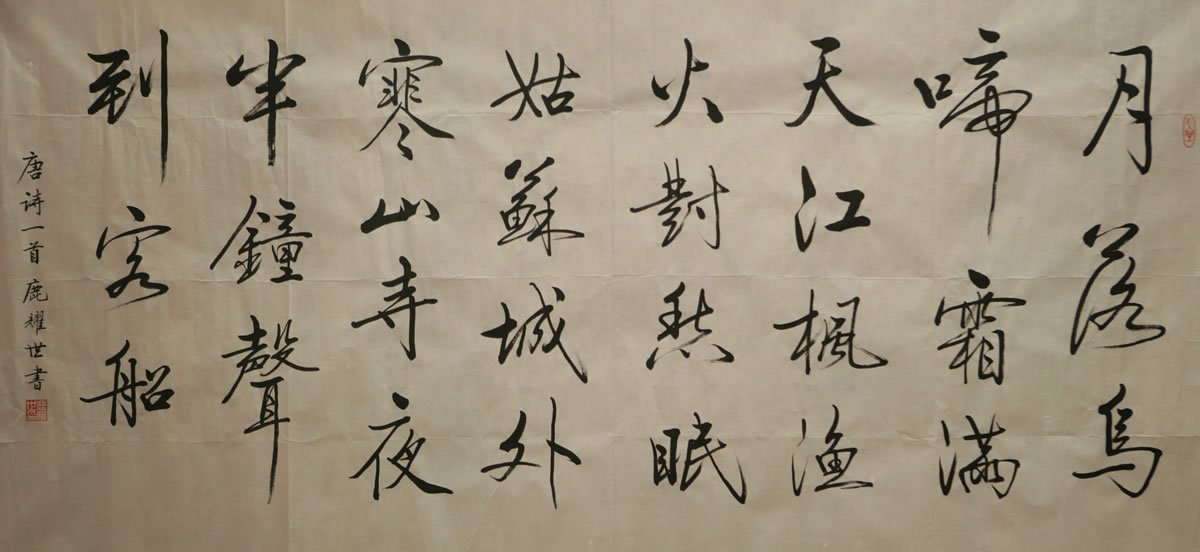 月落烏
啼霜滿
天江楓漁
火對愁眠
姑蘇城外
寒山寺夜
半鐘聲
到客船
唐诗一首鹿耀世書